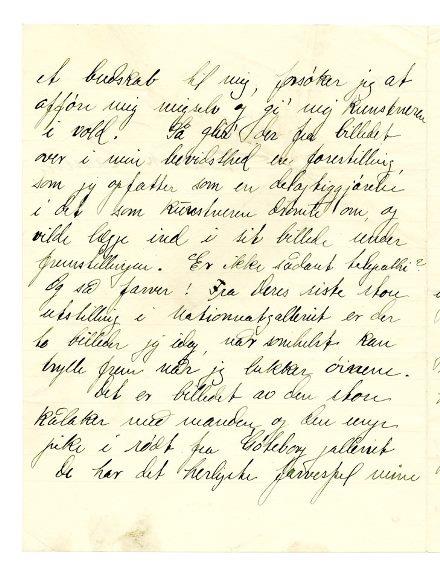 et budskab til mig, forsøker jeg at
afføre mig migselv og gi' mig kunstneren
i vold. Så glid' der fra billedet
over i min bevidsthed en forestilling,
som jeg opfatter som en delagtiggjørelse
i det som kunstneren drømte om, og
vilde lægge ind i sit billede under
fremstillingen. Er ikke sådant telepathi?
Og så farver! Fra Deres siste store
utstilling i Nationalgalleriet er der
to billeder jeg idag, når somhelst kan
trylle frem når jeg lukker öinene.
Det er billedet av den store
kålaker med manden og den unge
pike i rødt fra Göteborg galleriet
De har det herligste farvespil mine